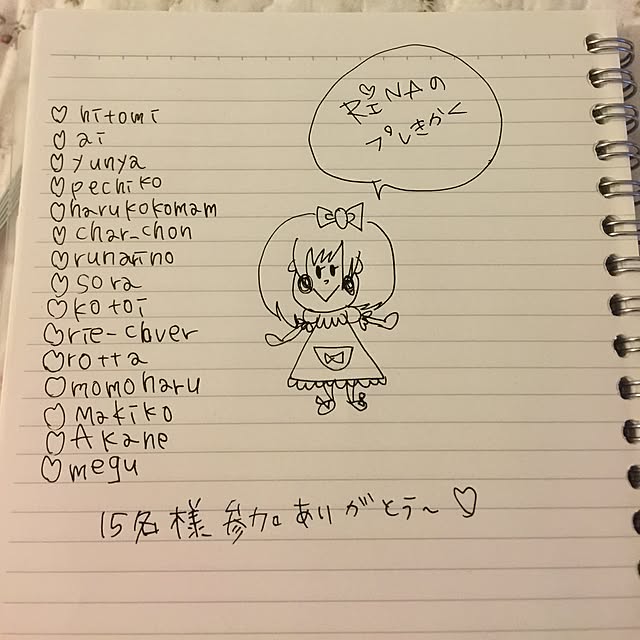 ♡ hitomi
♡ ai
♡ yunya
♡ pechiko
♡ harukokomam
♡ char_chon
♡ runarino
♡ sora
♡ kotoi
♡ rie-clover
♡ rotta
♡ momoharu
♡ Makiko
♡ Akane
♡ megu
RiNAの
プレきかく
15名様参加ありがとう~♡